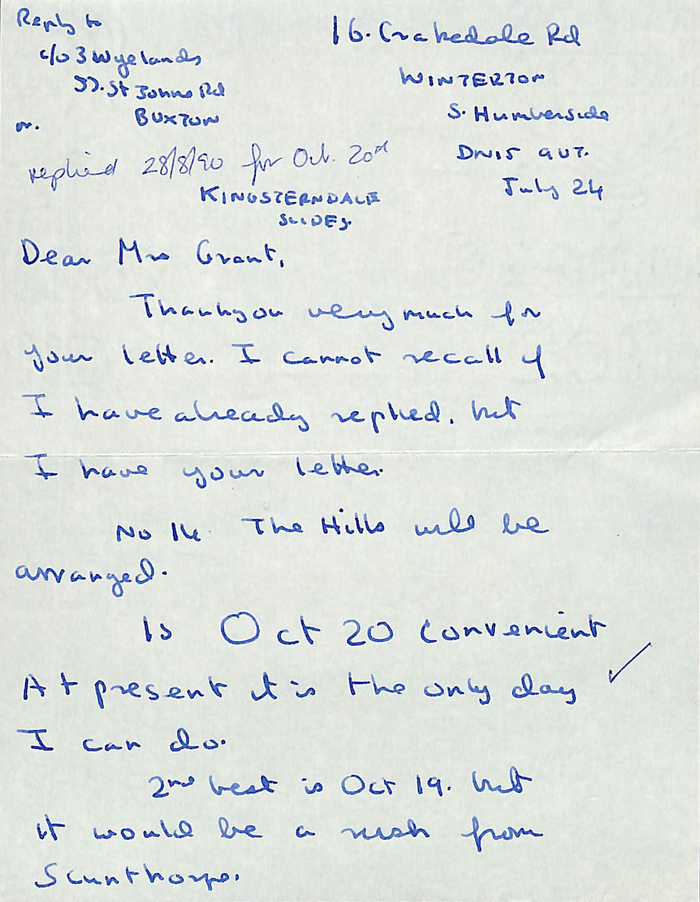 Reply to
c/o 3 Wyelands
St Johns Rd
BUXTON
or.
replied 28/8/90 for Oct. 20th
KINGSTERNDALE
SLIDES.
16. Crakedale Rd
WINTERTON
S. Humberside
DN15 9UT.
July 24
Dear Mrs Grant,
Thankyou very much for
your letter. I cannot recall if
I have already replied, but
I have your letter.
No 14 The Hills will be
arranged.
Is Oct 20 convenient
At present it is the only day
I can do.
2nd best is Oct 19. but
it would be a rush from
Scunthorpe.